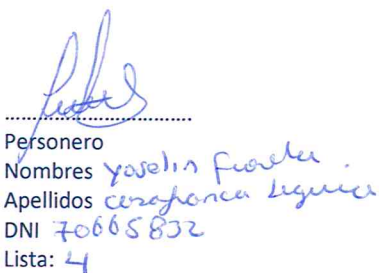 Personero
Nombres Yoselin Fiorela
Apellidos Casafranca Leguia
DNI 70665832
Lista: 4